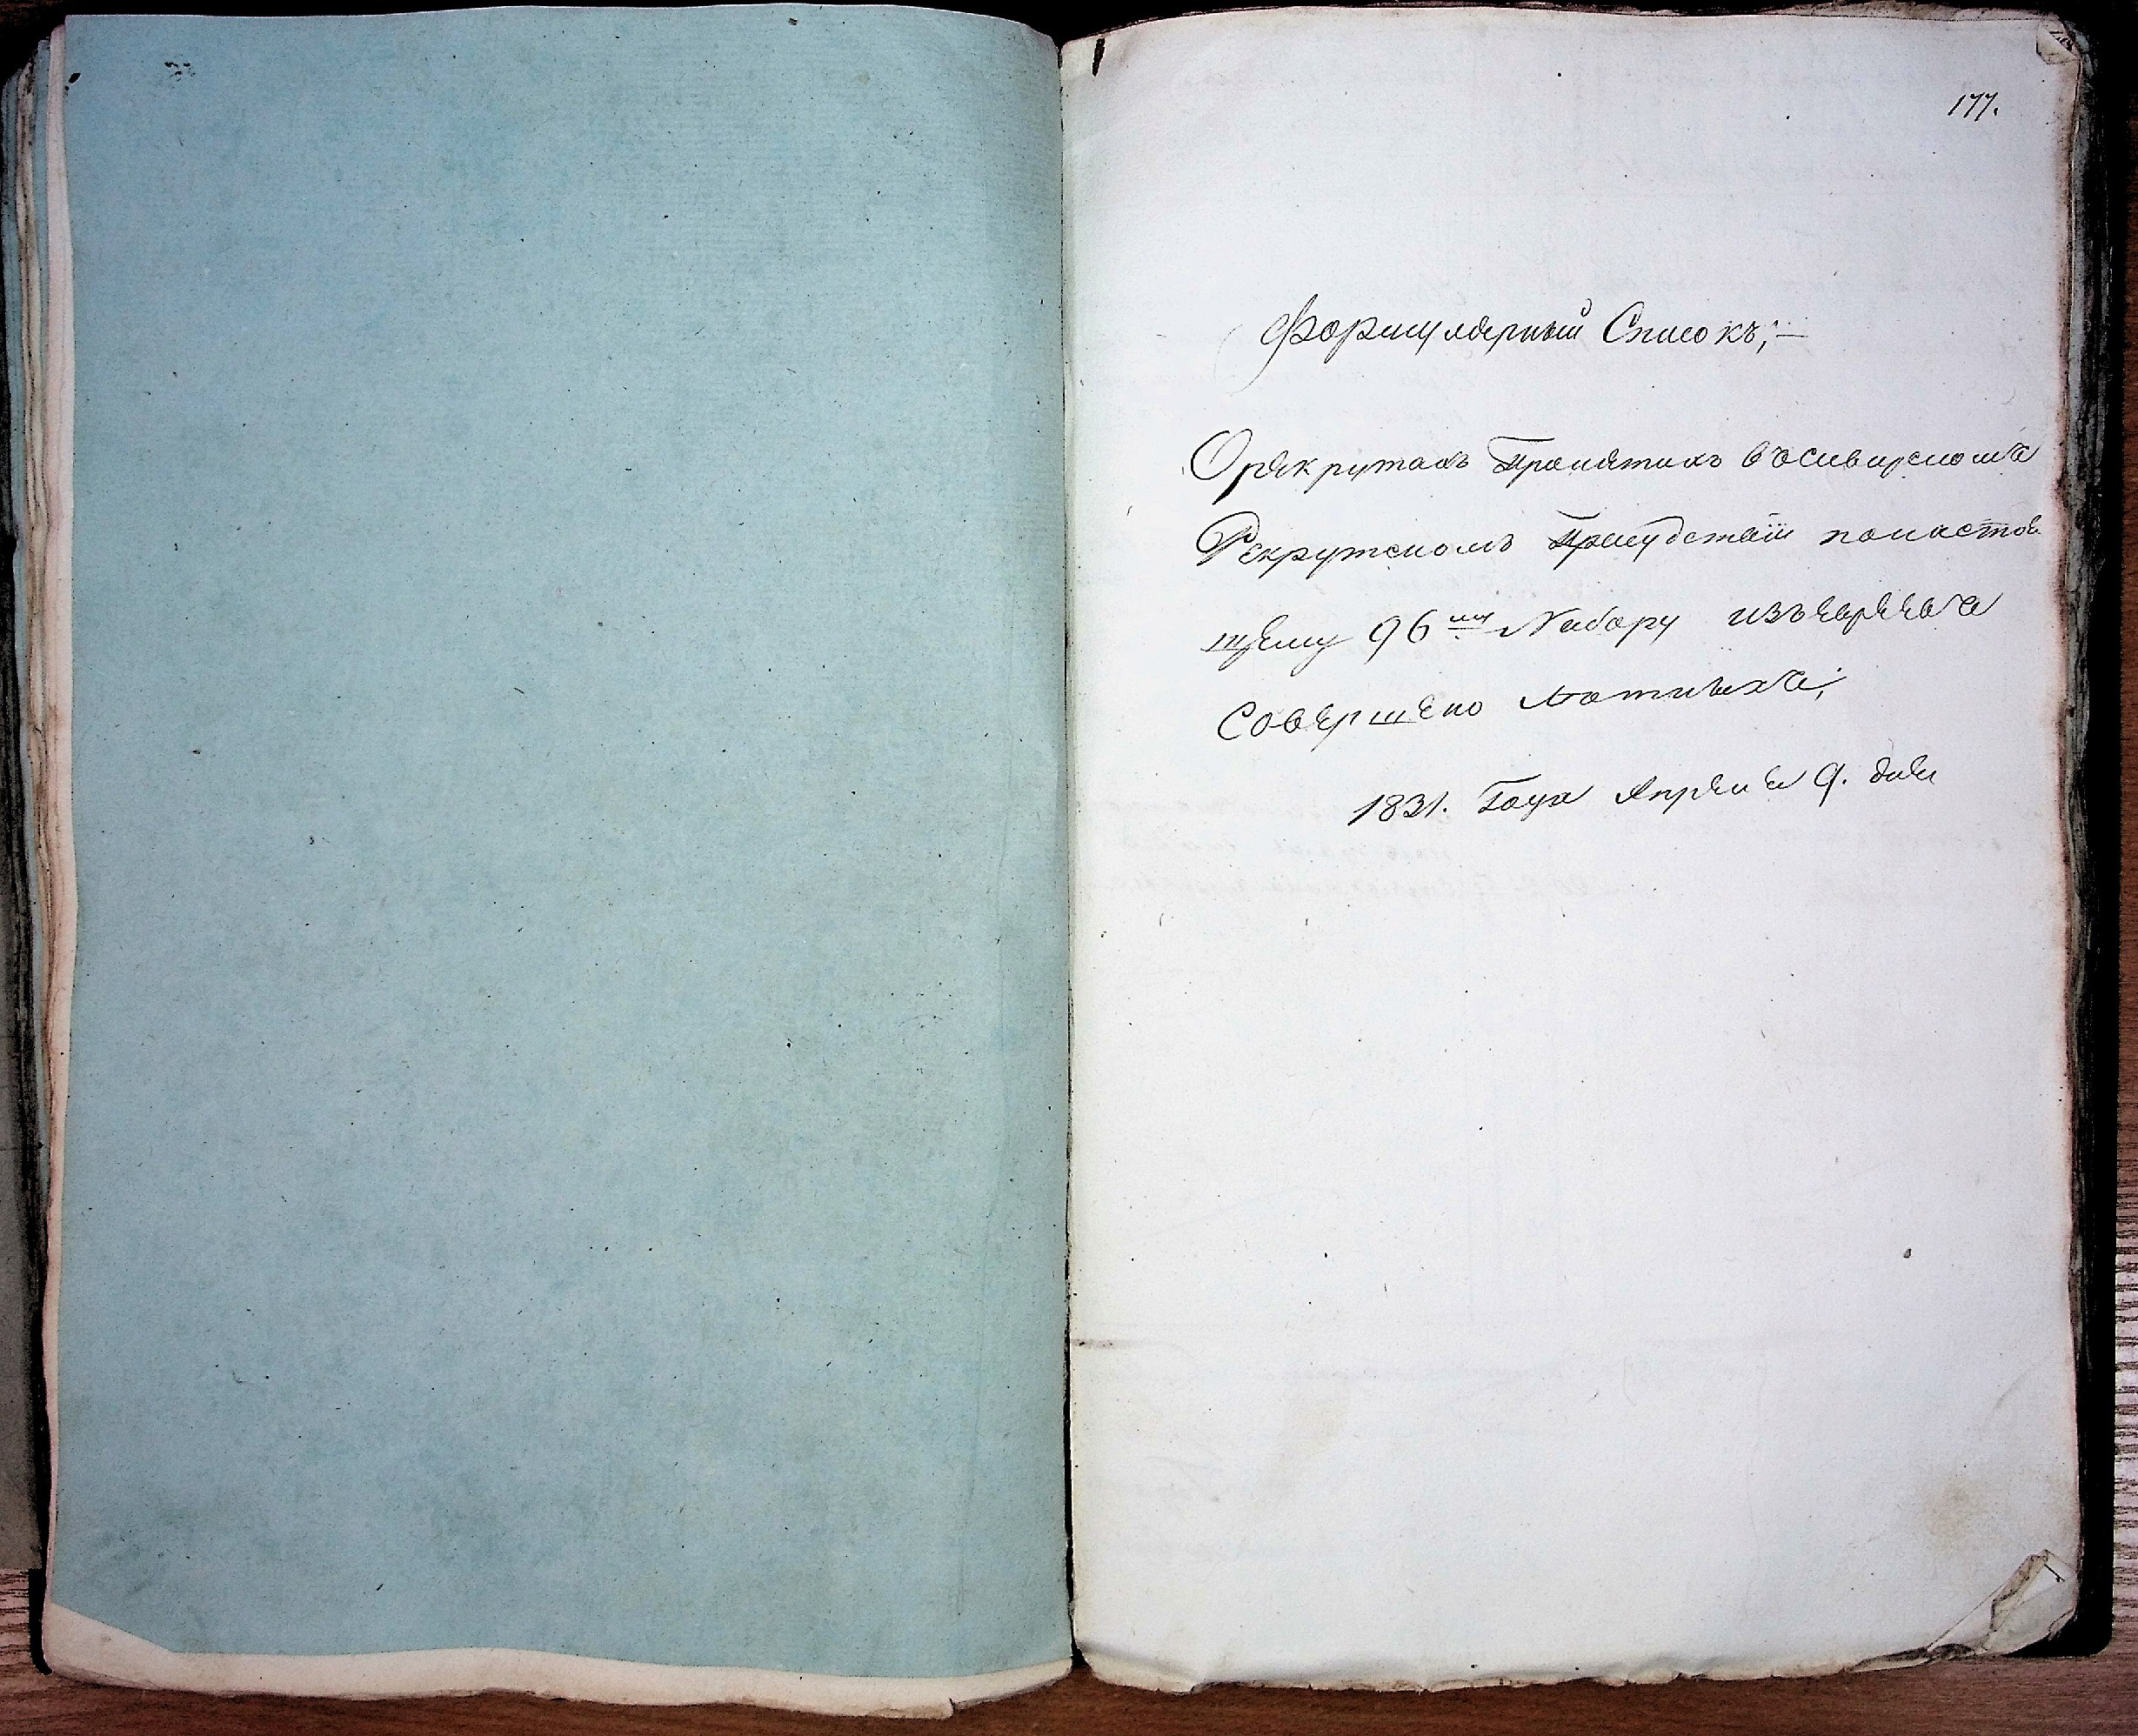 177.
Формулярный Списокъ;—
Орекрутахъ Принятихъ въ Сибирскомъ
Рекрутскомъ Присудствіи понастоя
щему 96му Набору изъ евреевъ
Совершено лѣтнихъ;
1831. Года Апреля 9. дня